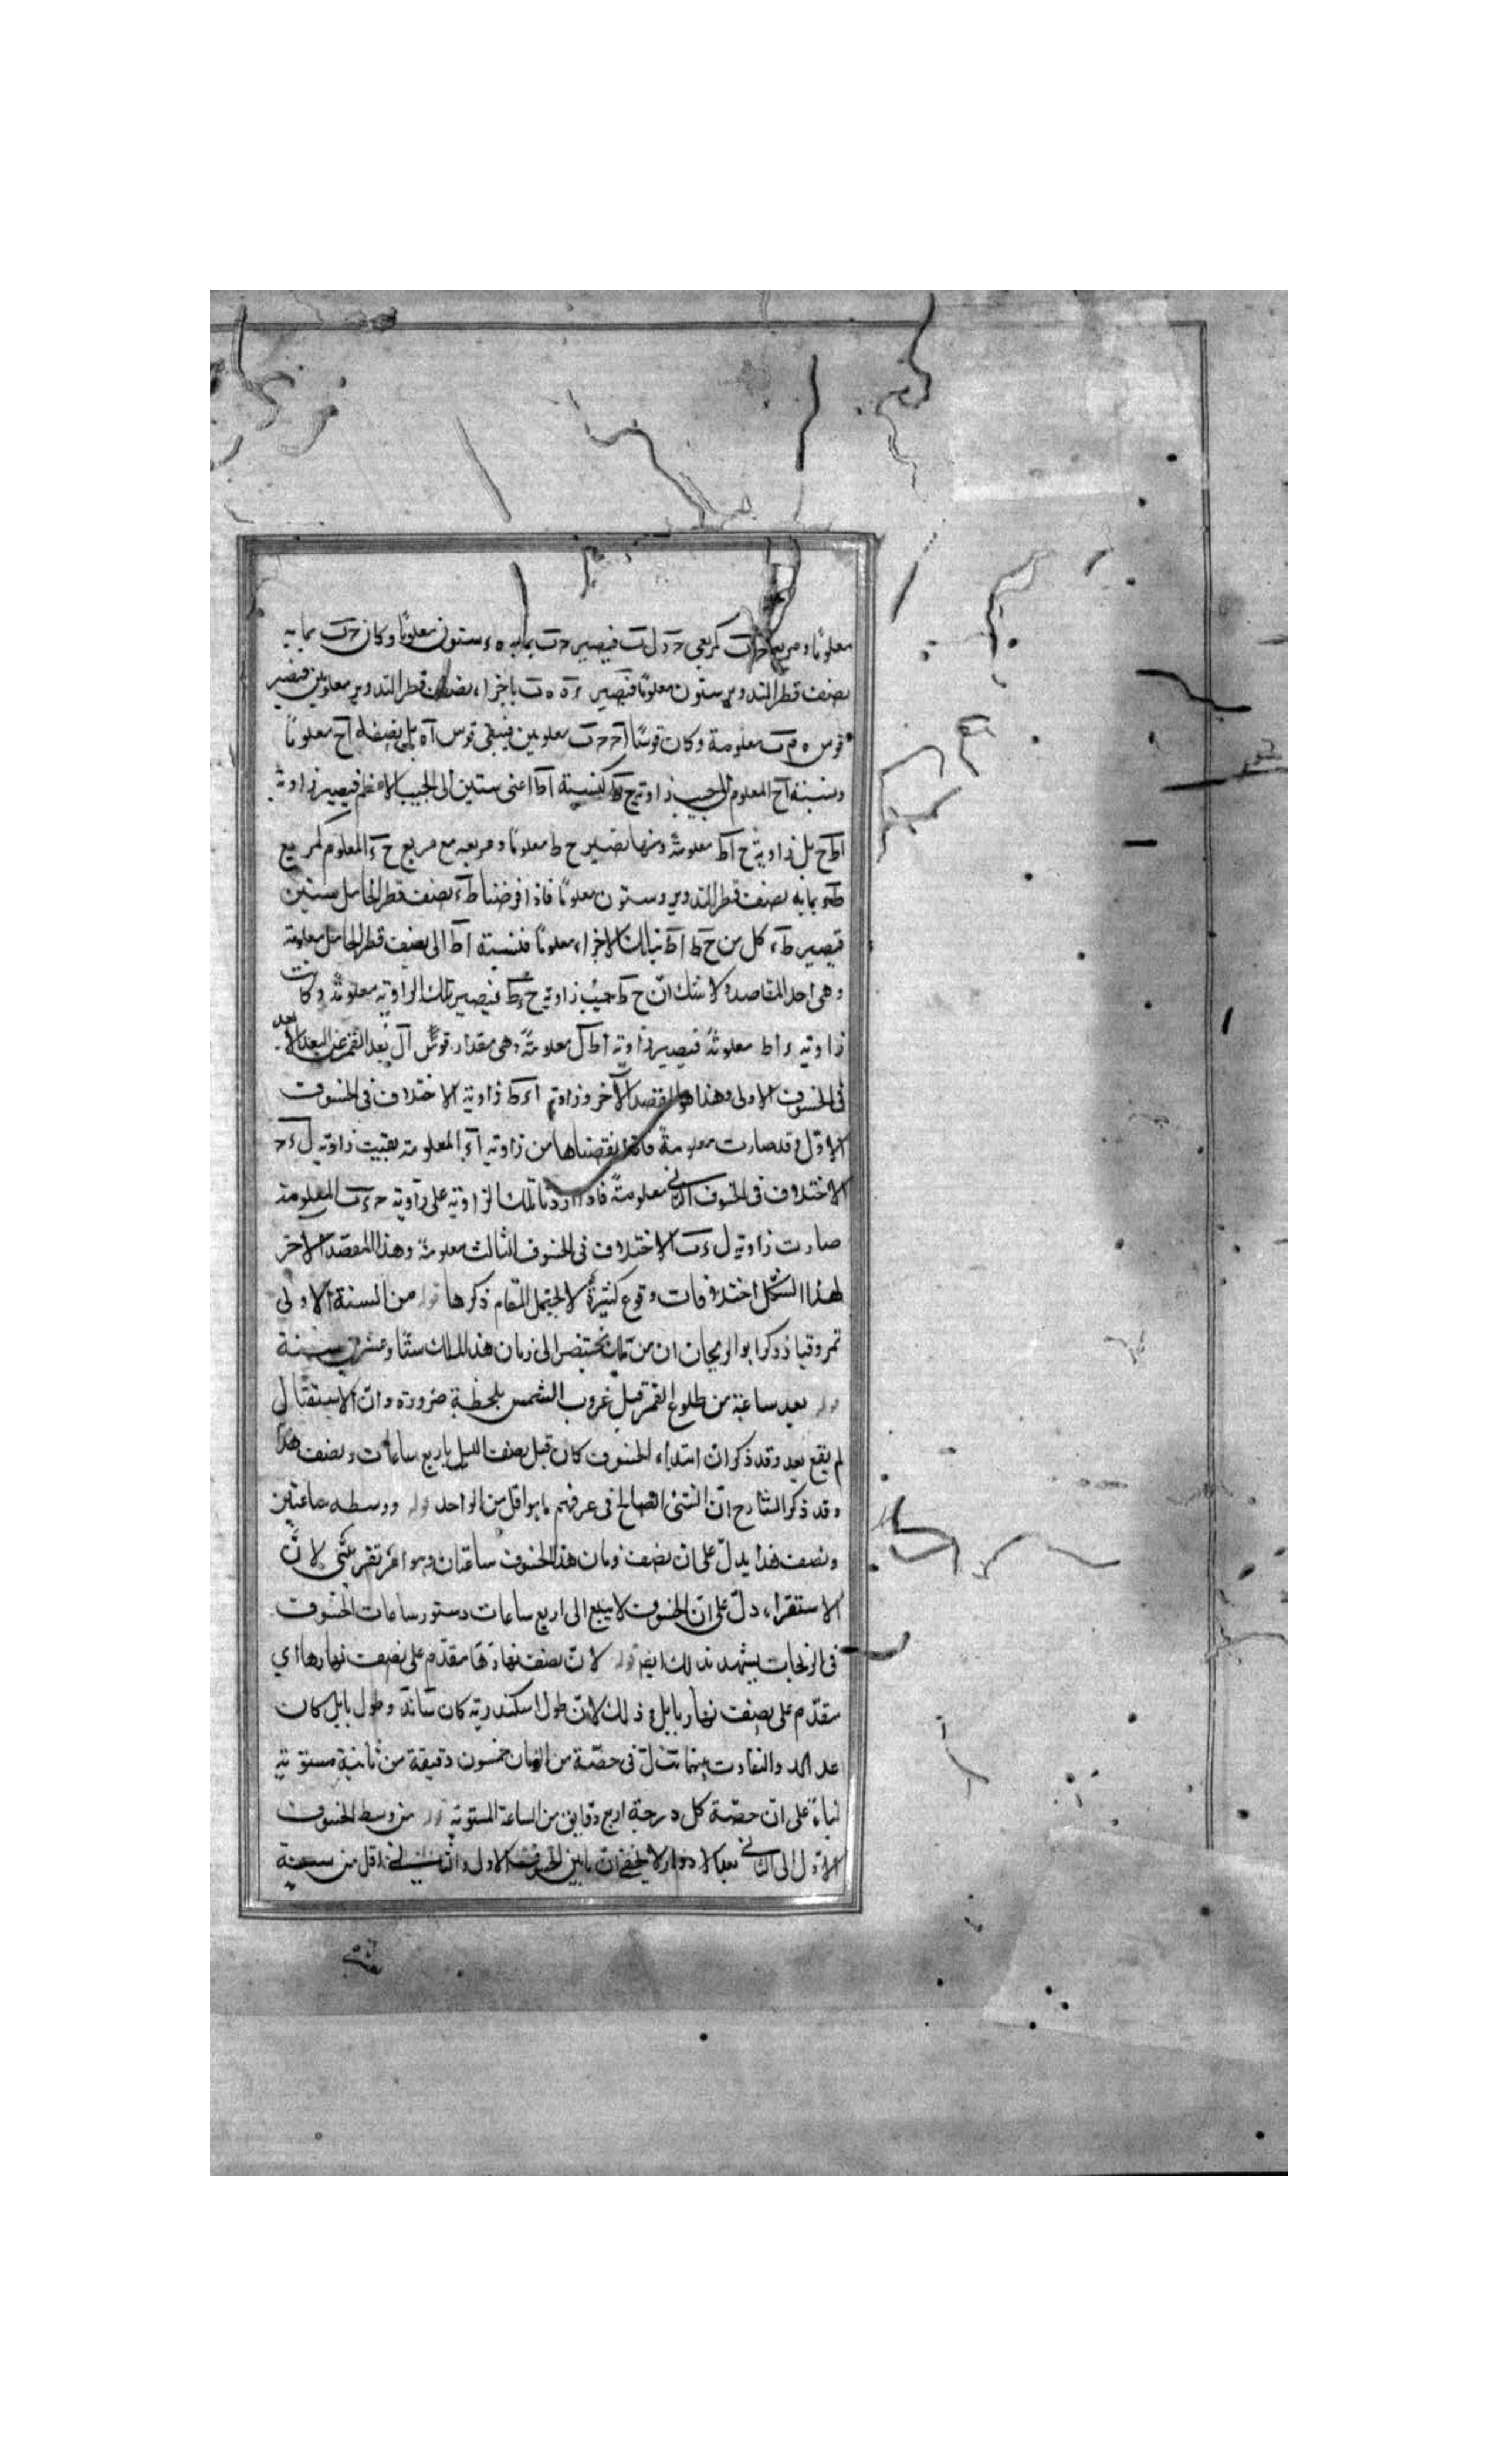 معلومًا ومربعا كمربعى حد ل ب فيصير حب بما به ستون معلومًا وكان حب بما به
نصف قطر التدوير ستون معلومًا فيصير ه ب باجزاء نصف قطر التدوير معلومين فيصير
قوس معلومة وكان قوسًا معلومين فيبقى قوس اه بل نصفه اح معلومًا
ونسبة اح المعلوم الى جيب زاوية كنسبة اط اعنى ستين الى الجيب الاعظم فيصير زاوية
اط ح بل زاوية ح اط معلومة ومنها يصير ح ط معلومًا ومربعه مع مربع ح ء المعلوم كمربع
ط ء بما به نصف قطر التدوير ستون معلومًا فاذا فرضنا ط ء نصف قطر الحامل ستين
فيصير ط ء كل من ح ط اط بتلك الاجزاء معلومًا فنسبة اط الى نصف قطر الحامل معلومة
وهى احد المقاصد ولا شك ان ح ط جيب زاوية ح ء ط فيصير تلك الزاوية معلومة وكانت
زاوية ء اط معلومة فيصير زاوية اط ل معلومة وهى مقدار قوس ال بعد القمر عن البعد الابعد
فى الخسوف الاول وهذا هو المقصد الآخر وزاوية اء ط زاوية الاختلاف فى الخسوف
الاول وقد صارت معلومة فاذا نقصناها من زاوية اء المعلومة بقيت زاوية ل ء ح
الاختلاف فى الخسوف الثانى معلومة فاذا زدنا تلك الزاوية على زاوية ح ء ب المعلومة
صارت زاوية ل ء ب الاختلاف فى الخسوف الثالث معلومة وهذا المقصد الاخر
لهذا الشكل اختلافات وقوع كثيرة لا يحتمل المقام ذكرها قوله من السنة الاولى
ذكر ابو الريحان ان من بختنصر الى زمان هذا الملك ستًا وعشرين سنة
قوله بعد ساعة من طلوع القمر قبل غروب الشمس بلحظة ضرورة وان الاستقبال
لم يقع بعد وقد ذكر ان ابتداء الخسوف كان قبل نصف الليل باربع ساعات ونصف هذا
وقد ذكر الشارح ان الشئ الصالح فى عرفهم ما هو اقل من الواحد قوله ووسطه ساعتين
ونصف هذا يدل على ان نصف زمان هذا الخسوف ساعتان وهو امر تقريبى لان
الاستقراء دل على ان الخسوف لا يبلغ الى اربع ساعات دستور ساعات الخسوف
فى الزيجات يشهد بذلك ايضا قوله لان نصف نهارها مقدم على نصف نهارها اى
مقدم على نصف نهار بابل وذلك لان طول اسكندرية كان وطول بابل كان
والتفاوت بينهما فى حصة من الزمان خمسون دقيقة من ثانية مستوية
بناء على ان حصة كل درجة اربع دقايق من الساعة المستوية قوله من وسط الخسوف
الاول الى الثانى بعد الادوار لا يخفى ان ما بين الخسوف الاول والثانى اقل من سنة